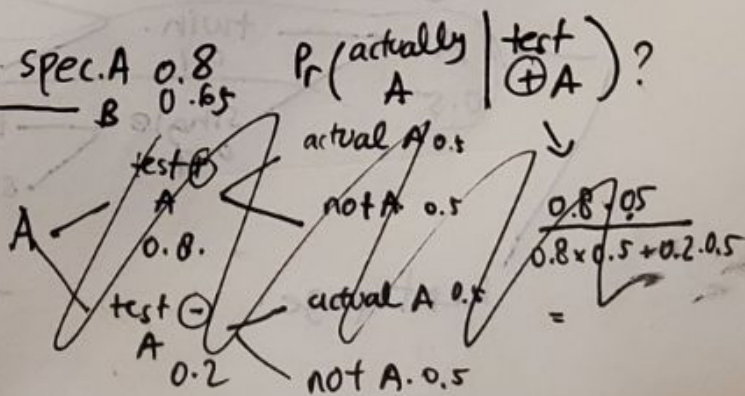 spec. A 0.8
B 0.65
Pr(actually A | test ⊕ A)?
test ⊕
A
0.8.
actual A 0.5
not A 0.5
A
test ⊖
A
0.2
actual A 0.5
not A. 0.5
0.8 · 0.5
0.8 × 0.5 + 0.2 · 0.5
=